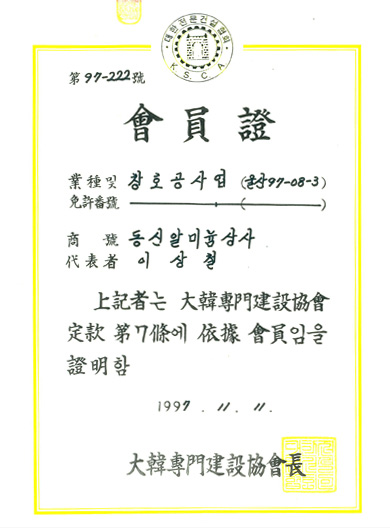 대한전문건설협회
K S C A
第97-222號
會員證
業種및 창호공사업 (울산97-08-3)
免許番號 ( )
商 號 동신알미늄상사
代表者 이 상 철
上記者는 大韓專門建設協會
定款 第7條에 依據 會員임을
證明함
1997 . 11 . 11.
大韓專門建設協會長